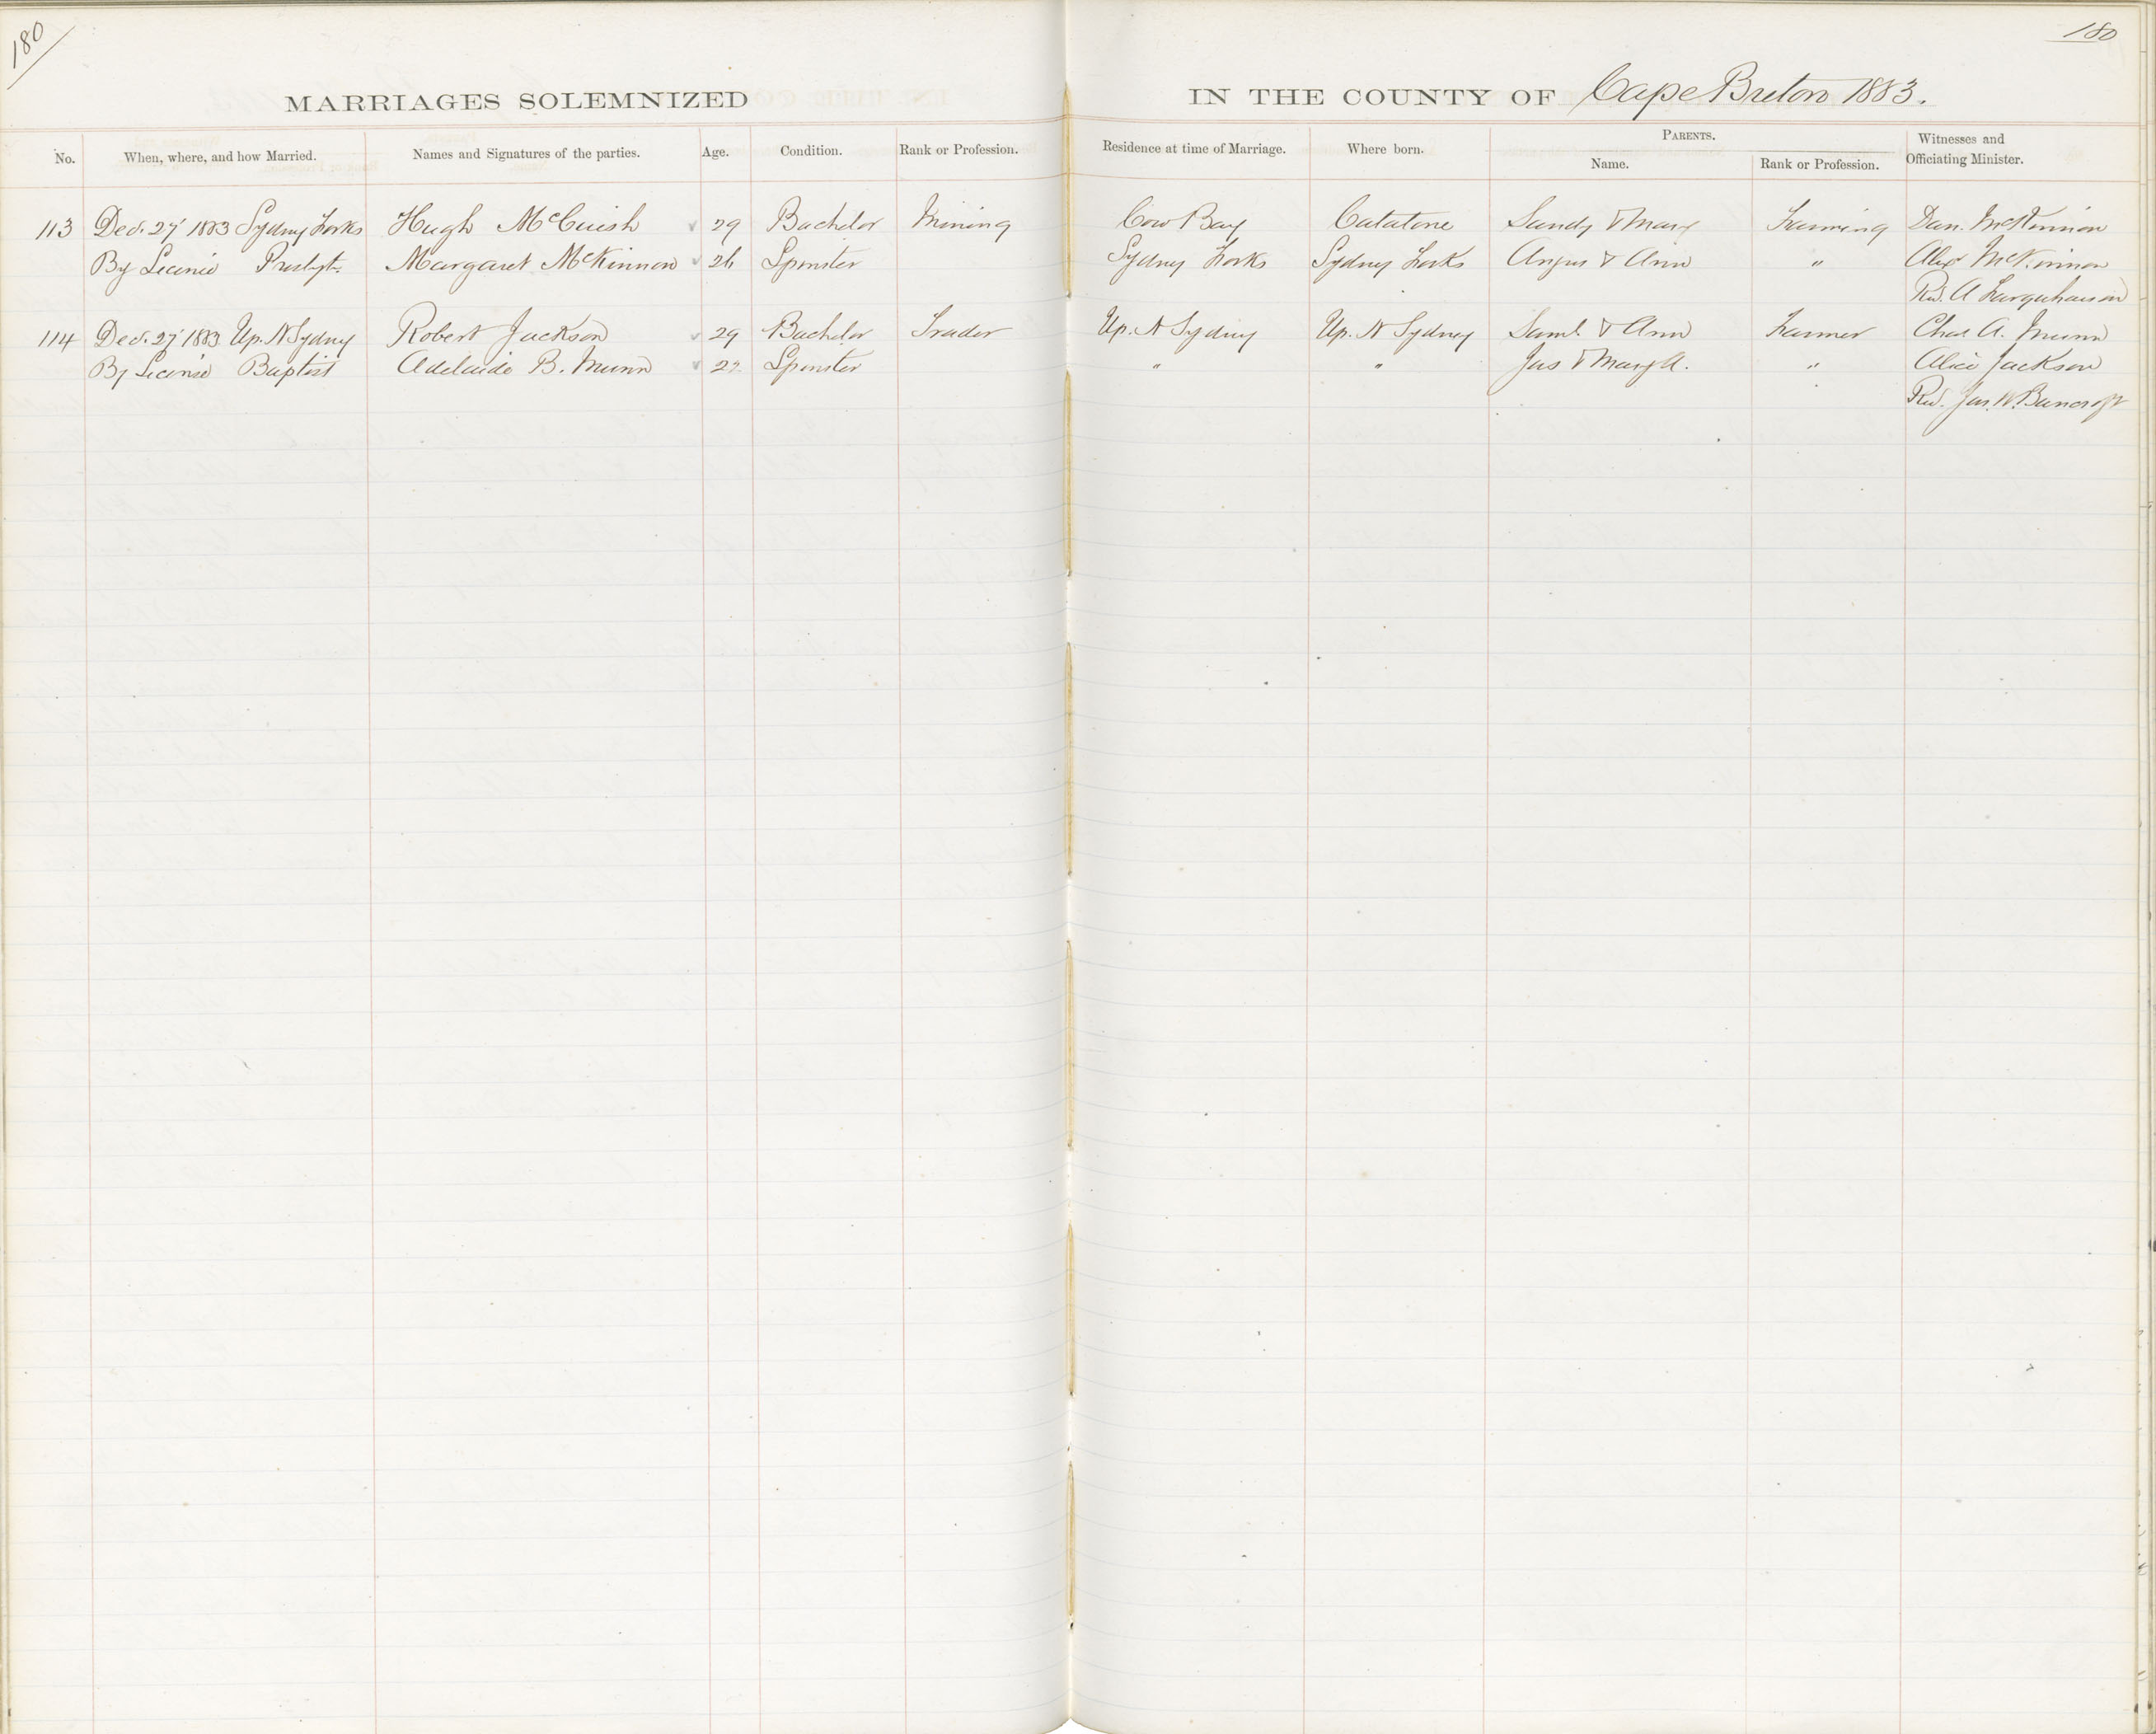 180
180
MARRIAGES SOLEMNIZED IN THE COUNTY OF Cape Breton 1883.
No. When, where, and how Married. Names and Signatures of the parties. Age. Condition. Rank or Profession. Residence at time of Marriage. Where born. PARENTS. Name. Rank or Profession. Witnesses and Officiating Minister.
113 Dec. 27 1883 Sydney Forks Hugh McCuish 29 Bachelor Mining Cow Bay Catatone Sandy & Mary Farming Dan. McKinnon
By Licence Presbyt. Margaret McKinnon 26 Spinster Sydney Forks Sydney Forks Angus & Ann " Alex McKinnon
Rev. A Farquharson
114 Dec. 27 1883 Up. N Sydney Robert Jackson 29 Bachelor Trader Up. N Sydney Up. N Sydney Saml. & Ann Farmer Chas. A. Munn
By Licence Baptist Adelaide B. Munn 22 Spinster " " Jas & Mary A. " Alice Jackson
Rev. Jas. W. Bancroft